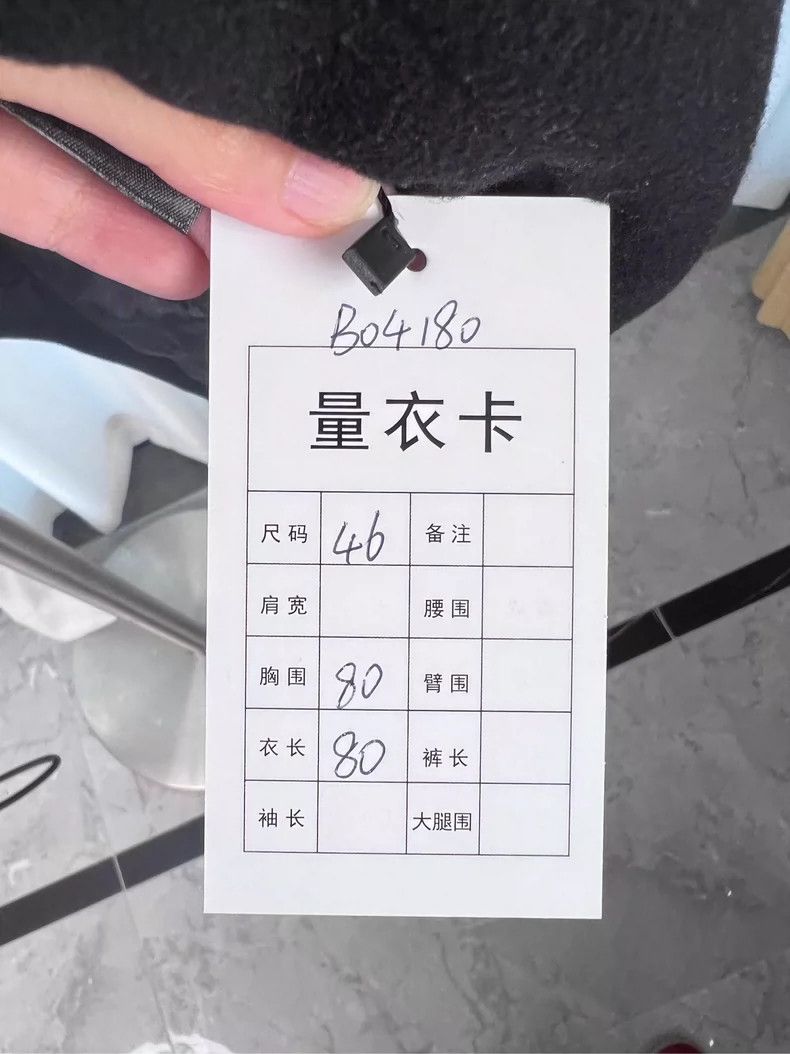 B04180
量衣卡
尺码 46 备注
肩宽 腰围
胸围 80 臂围
衣长 80 裤长
袖长 大腿围